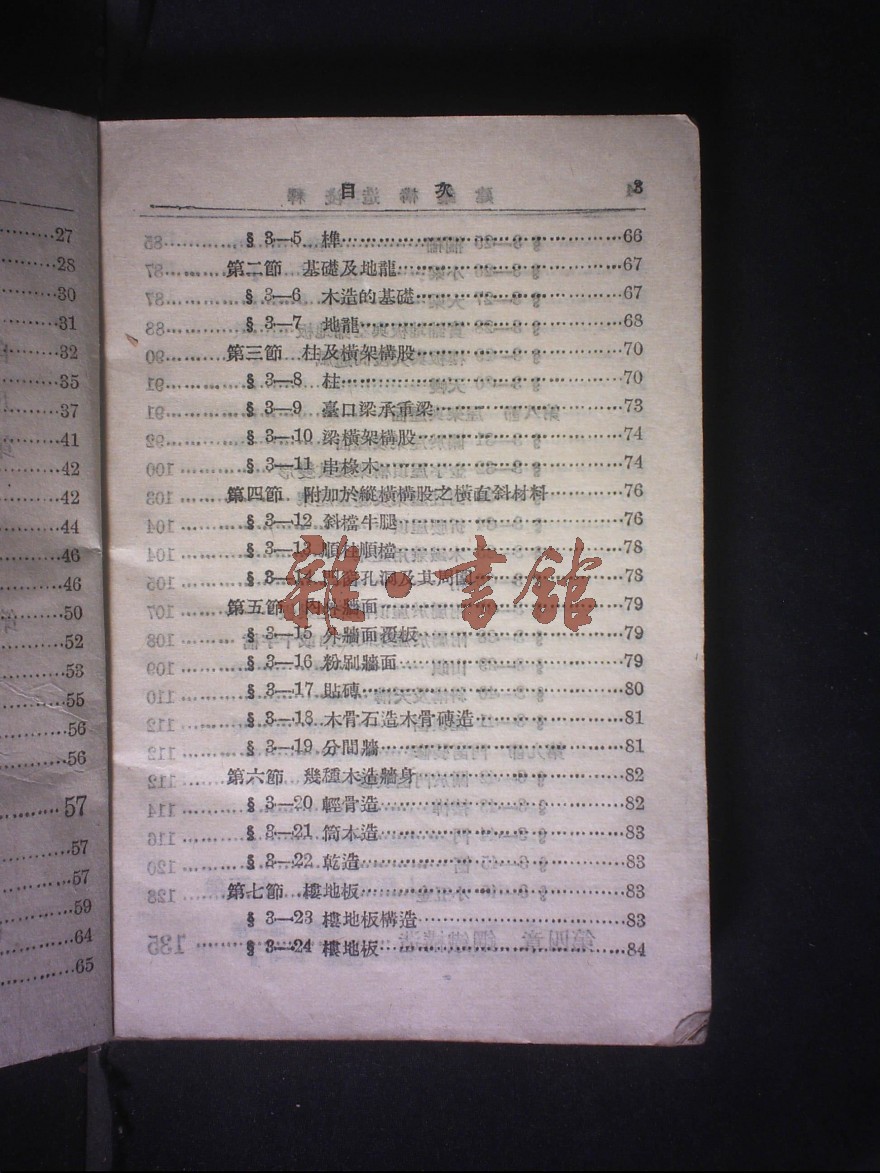 27
28
30
31
32
35
37
41
42
42
44
46
46
50
52
53
55
56
56
57
57
57
59
64
65
目次 3
§ 3—5 榫 66
第二節 基礎及地龍 67
§ 3—6 木造的基礎 67
§ 3—7 地龍 68
第三節 柱及橫架構股 70
§ 3—8 柱 70
§ 3—9 臺口梁承重梁 73
§ 3—10 梁橫架構股 74
§ 3—11 串椽木 74
第四節 附加於縱橫構股之橫直斜材料 76
§ 3—12 斜檔牛腿 76
§ 3—13 順柱順檔 78
§ 3—14 門窗孔洞及其周圍 78
第五節 內外牆面 79
§ 3—15 外牆面覆板 79
§ 3—16 粉刷牆面 79
§ 3—17 貼磚 80
§ 3—18 木骨石造木骨磚造 81
§ 3—19 分間牆 81
第六節 幾種木造牆身 82
§ 3—20 輕骨造 82
§ 3—21 筒木造 83
§ 3—22 乾造 83
第七節 樓地板 83
§ 3—23 樓地板構造 83
§ 3—24 樓地板 84
雜·書館